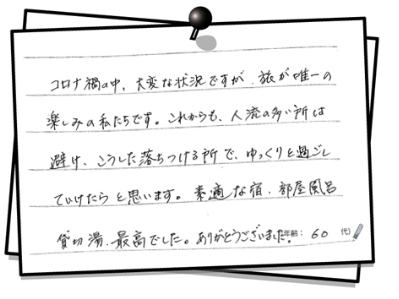 コロナ禍の中、大変な状況ですが、旅が唯一の
楽しみの私たちです。これからも、人流の多い所は
避け、こうした落ちつける所で、ゆっくりと過ごし
ていけたらと思います。素適な宿、部屋風呂
貸切湯、最高でした。ありがとうございました。年齢： 60 代